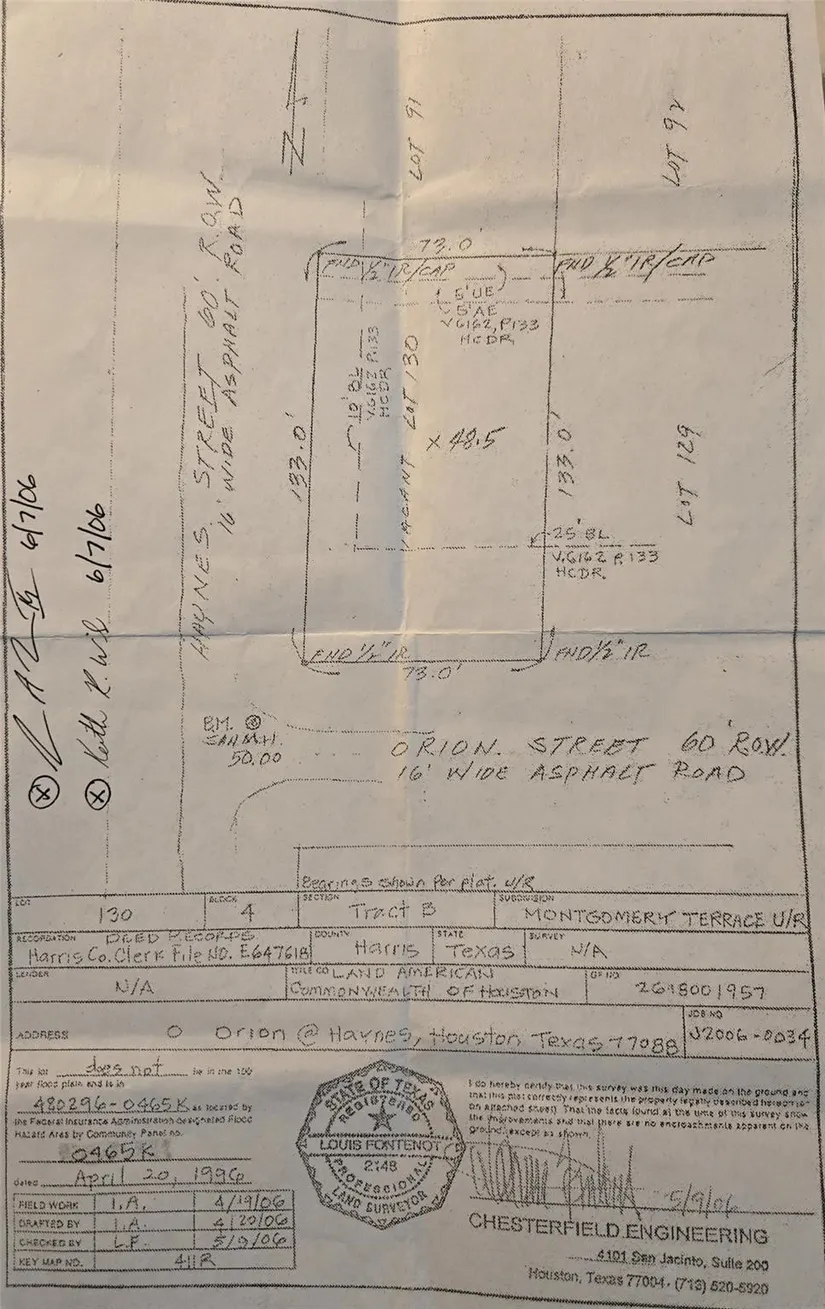 N
LOT 91
LOT 92
HAYNES STREET 60' R.O.W.
16' WIDE ASPHALT ROAD
73.0'
FND 1/2" IR/CAP
FND 1/2" IR/CAP
5' UE
5' AE
V.6162, P.133
HCDR
10' BL
V.6162 P.133
HCDR
133.0'
VACANT LOT 130
x 48.5
133.0'
LOT 129
25' BL
V.6162 P.133
HCDR.
FND 1/2" IR
73.0'
FND 1/2" IR
6/7/06
Keith R. Wil 6/7/06
B.M.
SAN M.H.
50.00
ORION. STREET 60' ROW.
16' WIDE ASPHALT ROAD
Bearings shown Per plat. U/R
LOT 130
BLOCK 4
SECTION Tract B
SUBDIVISION MONTGOMERY TERRACE U/R
RECORDATION DEED RECORDS
Harris Co. Clerk File No. E647618
COUNTY Harris
STATE Texas
SURVEY N/A
LENDER N/A
TITLE CO LAND AMERICAN
COMMONWEALTH OF HOUSTON
GF NO. 2698001957
ADDRESS 0 Orion @ Haynes, Houston Texas 77088
JOB NO J2006-0034
This lot does not lie in the 100
year flood plain and is in
480296-0465K as located by
the Federal Insurance Administration designated Flood
Hazard Area by Community Panel no.
0465K
dated April 20, 1996
FIELD WORK I.A. 4/19/06
DRAFTED BY I.A. 4/20/06
CHECKED BY L.F. 5/9/06
KEY MAP NO. 411R
STATE OF TEXAS
REGISTERED
LOUIS FONTENOT
2148
PROFESSIONAL
LAND SURVEYOR
I do hereby certify that this survey was this day made on the ground and
that this plat correctly represents the property legally described hereon (or
on attached sheet). That the facts found at the time of this survey show
the improvements and that there are no encroachments apparent on the
ground, except as shown.
5/9/06
CHESTERFIELD ENGINEERING
4101 San Jacinto, Suite 200
Houston, Texas 77004 - (713) 520-5920